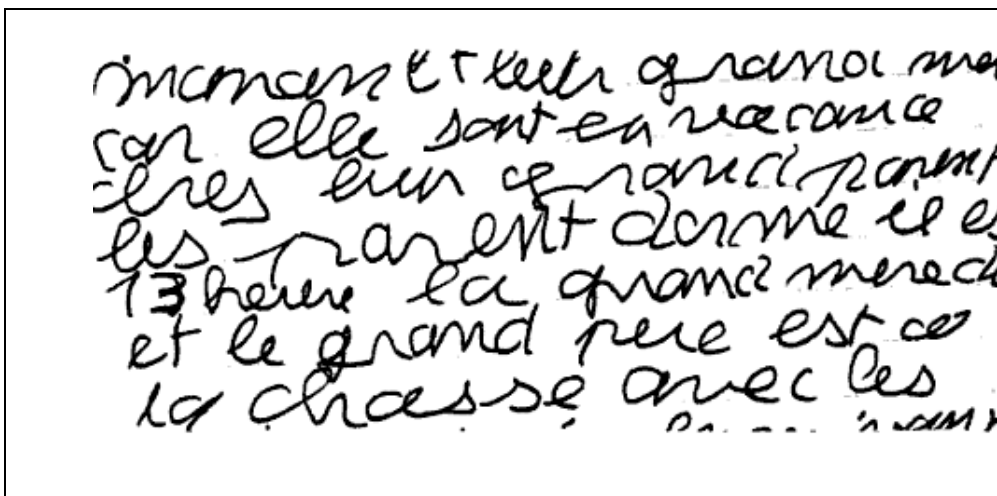 maman et leur grand me
car elle sont en vacance
chres leur grand parent
les parent dorme il es
13 heure la grand mere d
et le grand pere est a
la chasse avec les